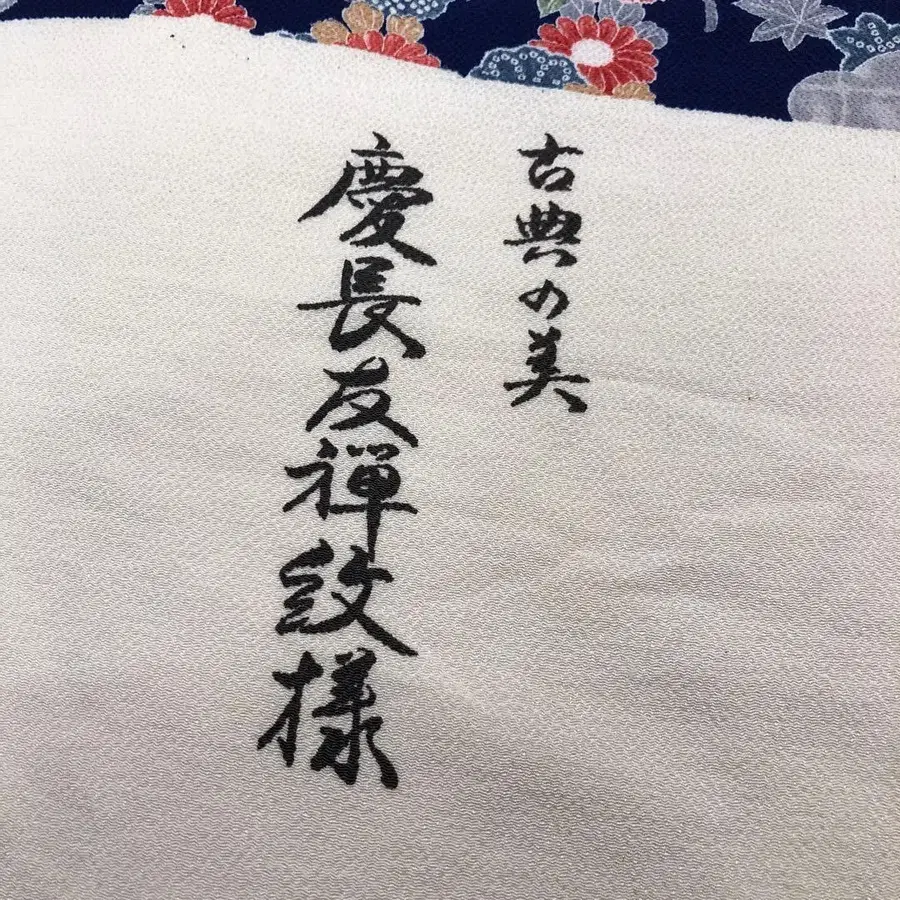 古典の美
慶長友禅紋様